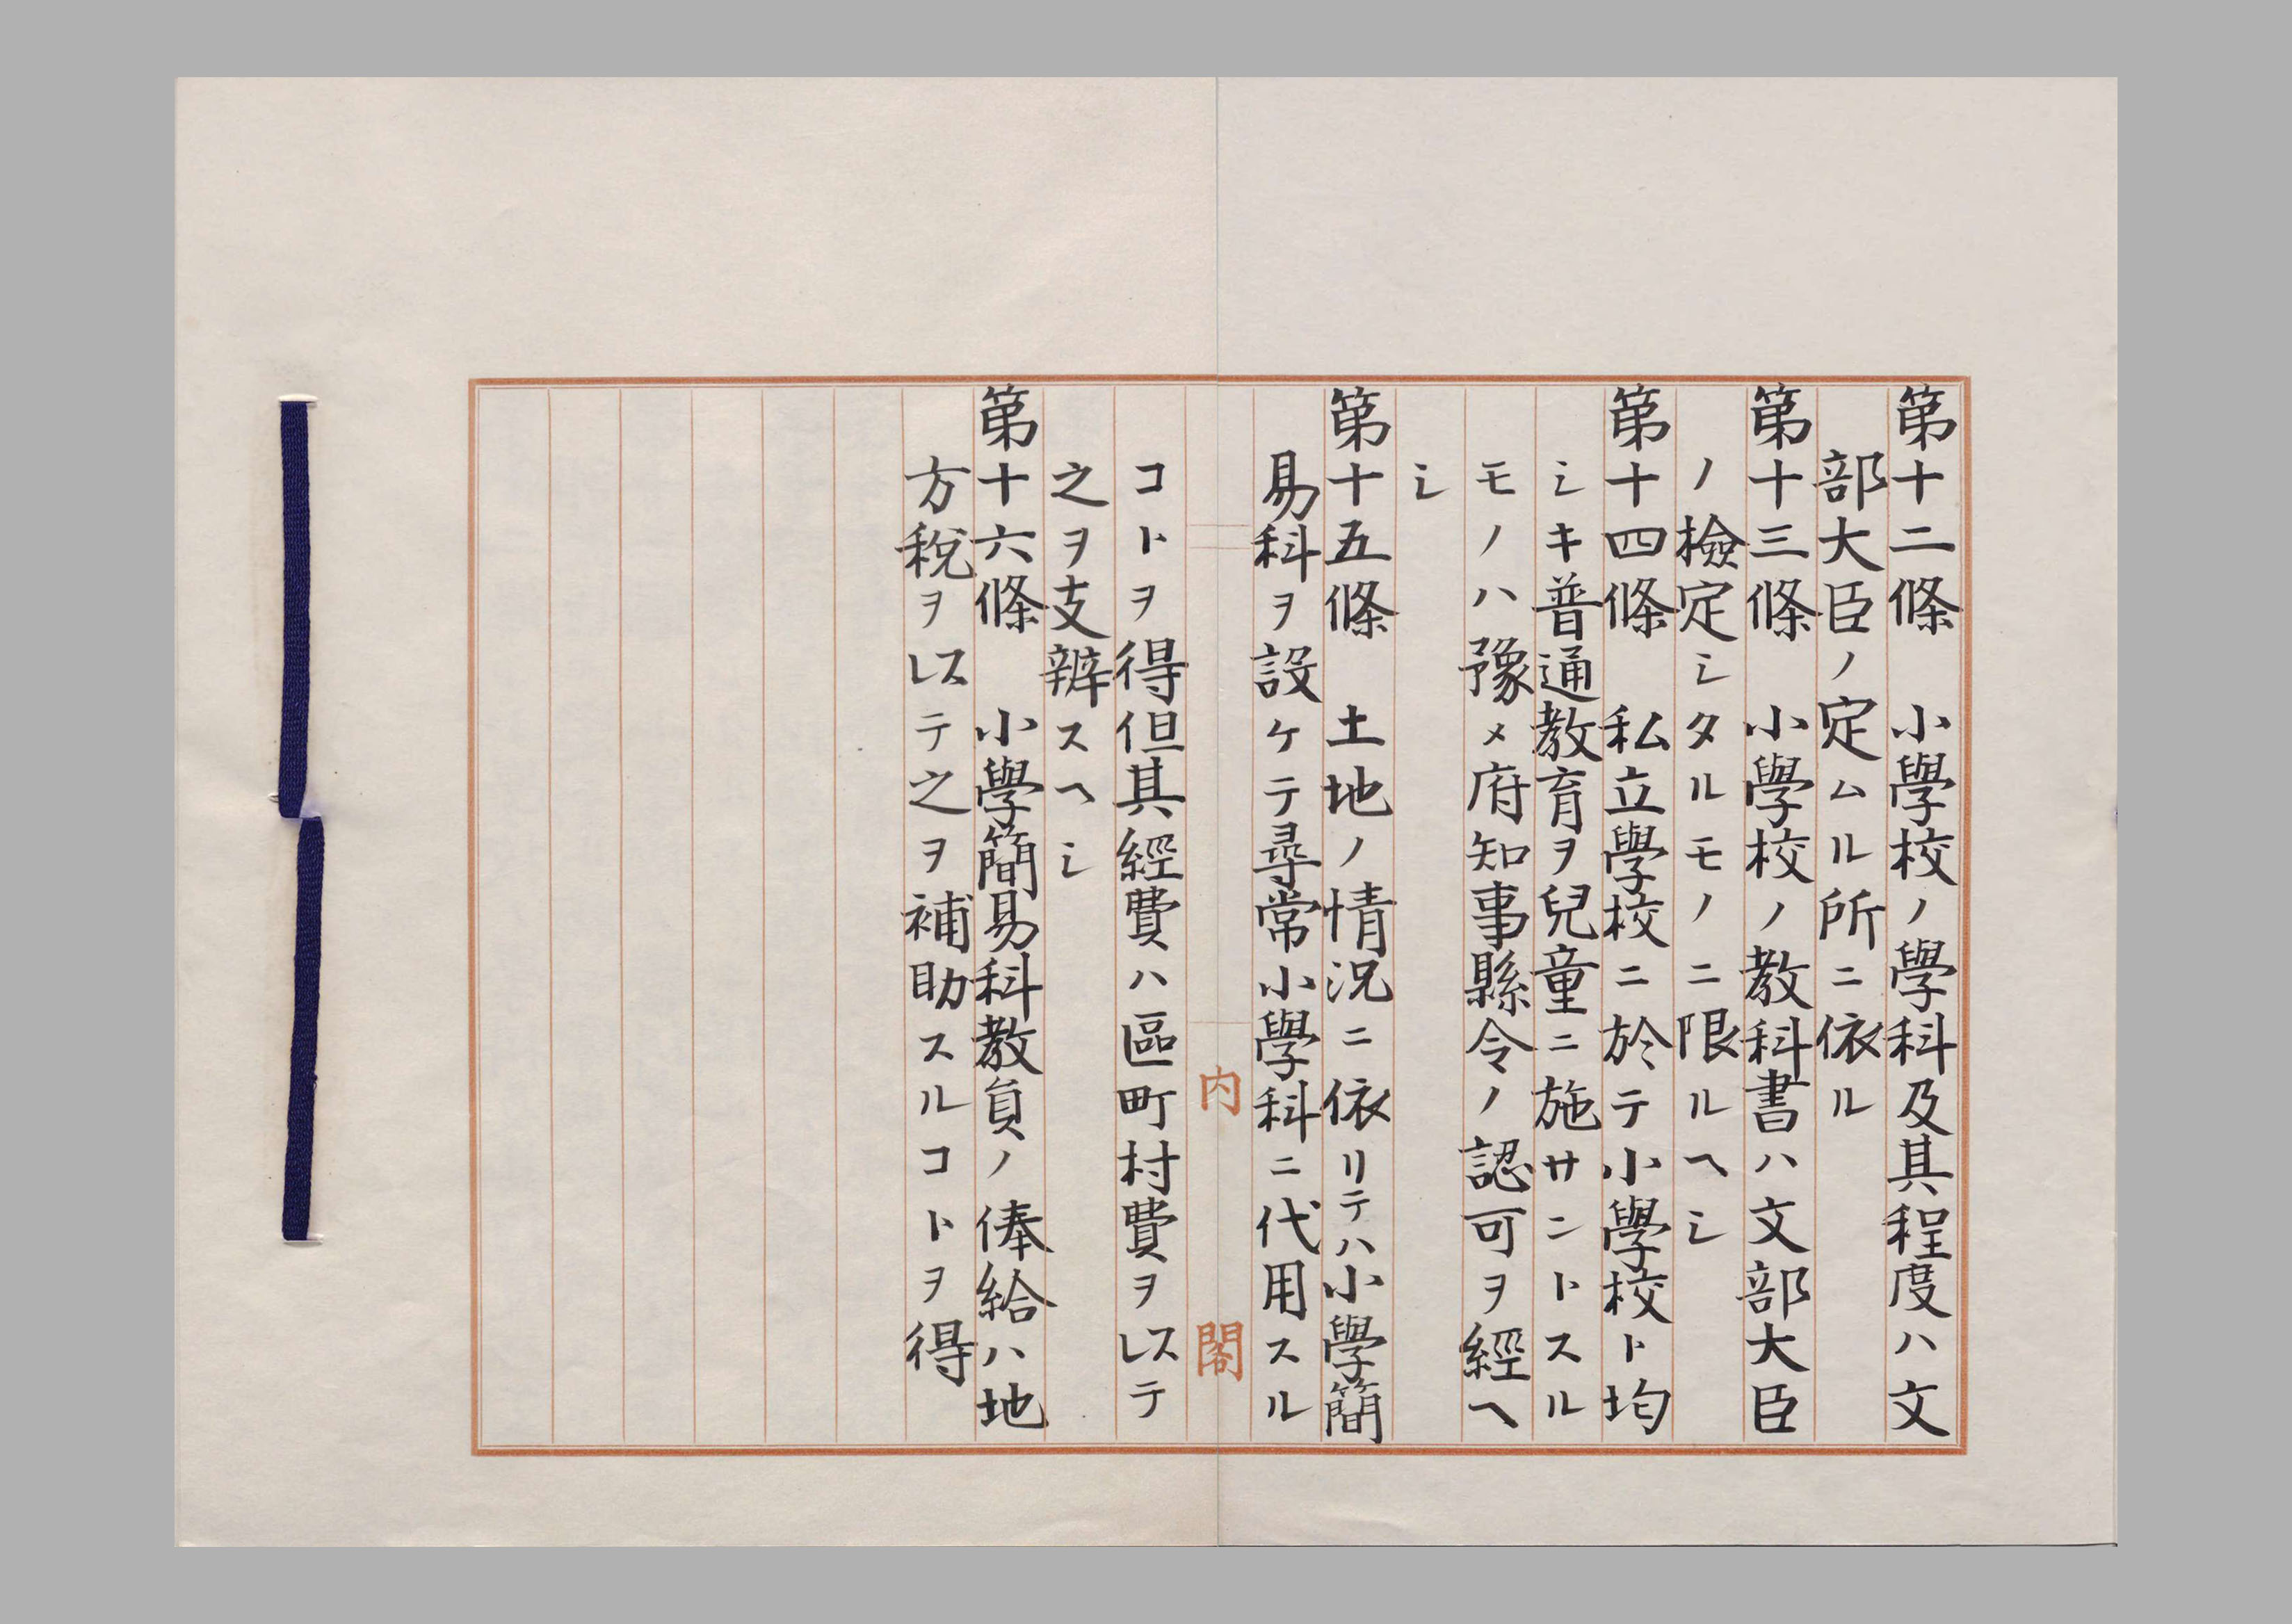 第十二條　小學校ノ學科及其程度ハ文
部大臣ノ定ムル所ニ依ル
第十三條　小學校ノ教科書ハ文部大臣
ノ檢定シタルモノニ限ルヘシ
第十四條　私立學校ニ於テ小學校ト均
シキ普通教育ヲ兒童ニ施サントスル
モノハ豫メ府知事縣令ノ認可ヲ經ヘ
シ
第十五條　土地ノ情況ニ依リテハ小學簡
易科ヲ設ケテ尋常小學科ニ代用スル
内閣
コトヲ得但其經費ハ區町村費ヲ以テ
之ヲ支辨スヘシ
第十六條　小學簡易科教員ノ俸給ハ地
方税ヲ以テ之ヲ補助スルコトヲ得